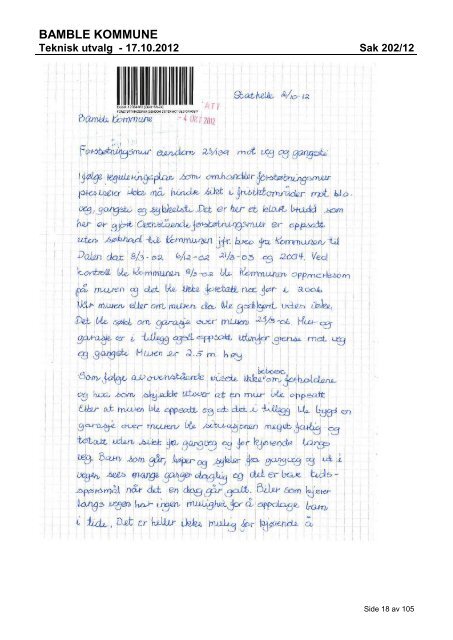 BAMBLE KOMMUNE
Teknisk utvalg - 17.10.2012 Sak 202/12
Stathelle 2/10-12
ATT
Bamble Kommune
4 OKT 2012
Forstøtningsmur eiendom 23/139 mot veg og gangsti
Ifølge reguleringsplan som omhandler forstøtningsmur
presiserer ikke må hindre sikt i frisiktområder mot bla.
veg, gangsti og sykkelsti. Det er her et klart brudd som
her er gjort. Ovenstående forstøtningsmur er oppsatt
uten søknad til Kommunen jfr. brev fra Kommunen til
Dalen dat. 8/3-02 6/12-02 21/3-03 og 2004. Ved
kontroll ble Kommunen 8/3-02 ble Kommunen oppmerksom
på muren og det ble ikke foretatt noe før i 2006
Når muren eller om muren da ble godkjent viten ikke.
Det ble søkt om garasje over muren 23/5-06 Mur og
garasje er i tillegg også oppsatt utenfor grense mot veg
og gangsti Muren er 2.5 m høy
Som følge av ovenstående visste beboere ikke om forholdene
og hva som skjedde utover at en mur ble oppsatt
Etter at muren ble oppsatt og at det i tillegg ble bygd en
garasje over muren ble situasjonen meget farlig og
totalt uten sikt fra gangveg og for kjørende langs
veg. Barn som går, løper og sykler fra gangveg og ut i
vegen sees mange ganger daglig og det er bare tids-
spørsmål når det en dag går galt. Biler som kjører
langs vegen har ingen mulighet for å oppdage barn
i tide. Det er heller ikke mulig for kjørende å
Side 18 av 105